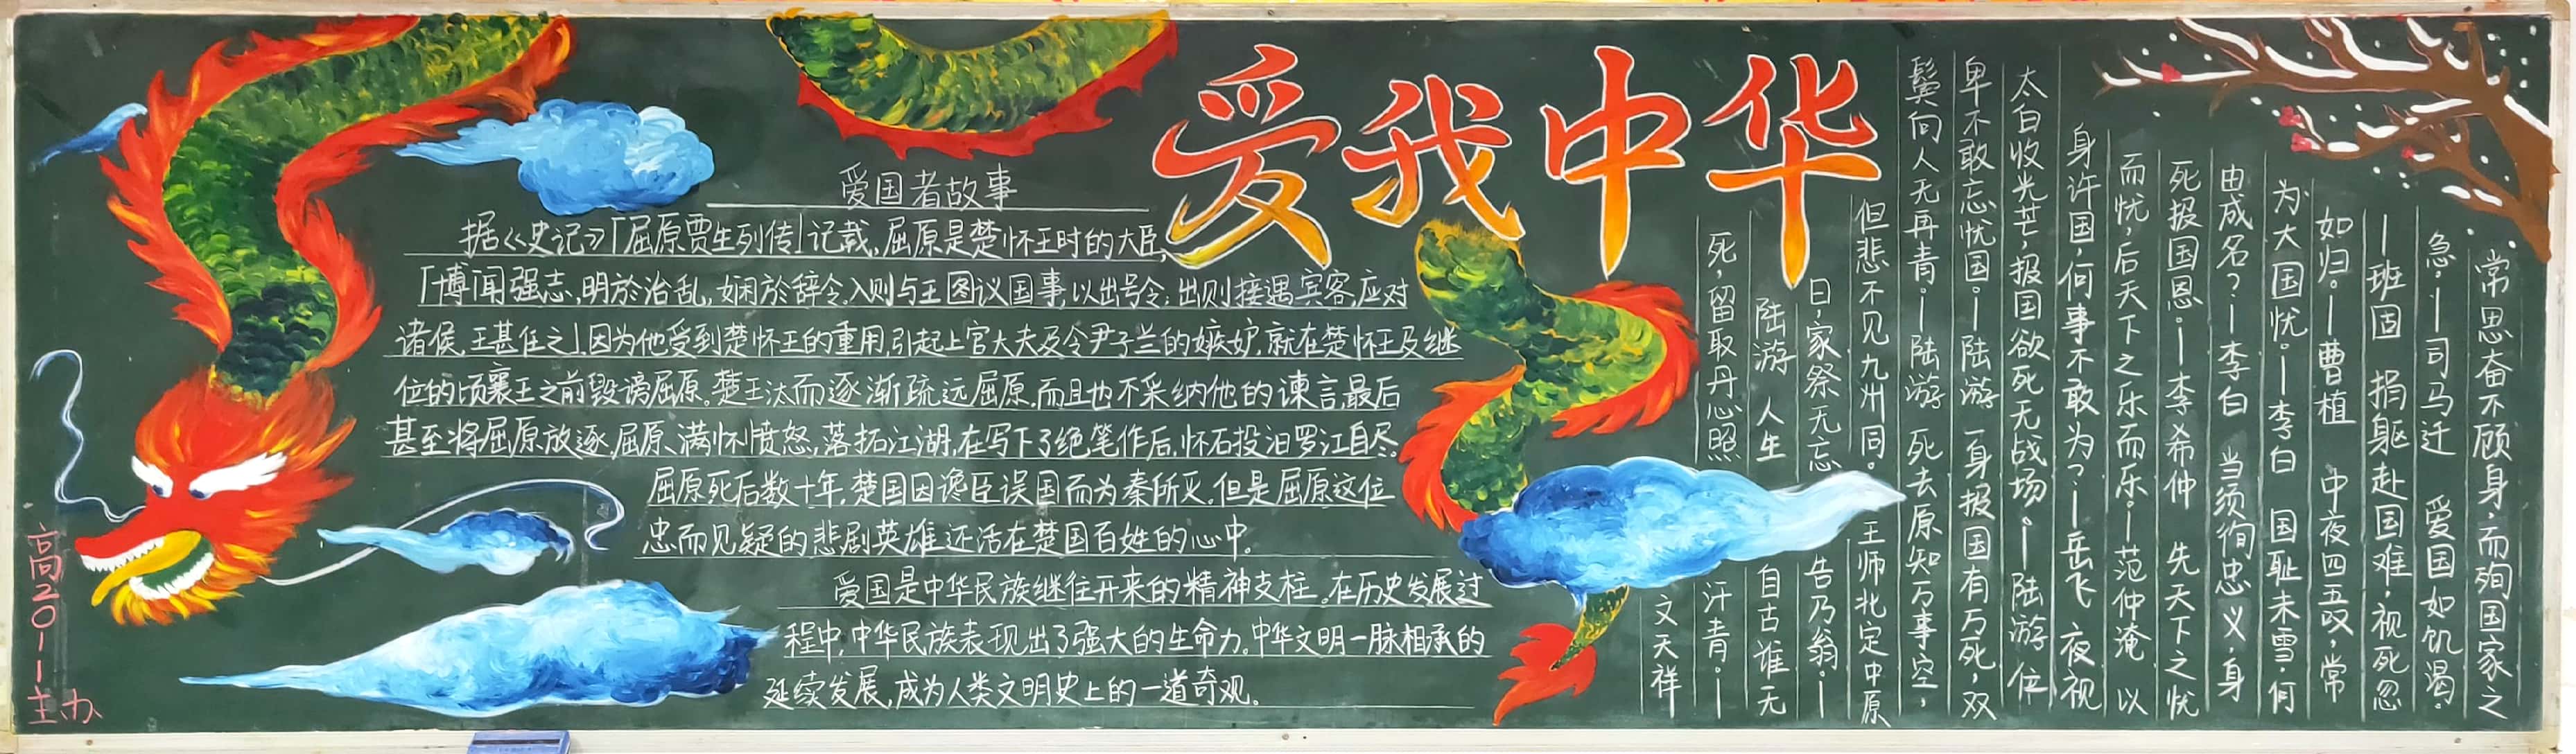 爱我中华
爱国者故事
据《史记》「屈原贾生列传」记载,屈原是楚怀王时的大臣,
「博闻强志,明於治乱,娴於辞令。入则与王图议国事,以出号令;出则接遇宾客,应对
诸侯,王甚任之」因为他受到楚怀王的重用,引起上官大夫及令尹子兰的嫉妒,就在楚怀王及继
位的顷襄王之前毁谤屈原。楚王汰而逐渐疏远屈原,而且也不采纳他的谏言,最后
甚至将屈原放逐,屈原满怀愤怒,落拓江湖,在写下了绝笔作后,怀石投汨罗江自尽。
屈原死后数十年,楚国因谗臣误国而为秦所灭,但是屈原这位
忠而见疑的悲剧英雄还活在楚国百姓的心中。
爱国是中华民族继往开来的精神支柱。在历史发展过
程中,中华民族表现出了强大的生命力,中华文明一脉相承的
延续发展,成为人类文明史上的一道奇观。
常思奋不顾身,而殉国家之
急。—司马迁 爱国如饥渴。
—班固 捐躯赴国难,视死忽
如归。—曹植 中夜四五叹,常
为大国忧。—李白 国耻未雪,何
由成名?—李白 当须徇忠义,身
死报国恩。—李希仲 先天下之忧
而忧,后天下之乐而乐。—范仲淹 以
身许国,何事不敢为?—岳飞 夜视
太白收光芒,报国欲死无战场。—陆游 位
卑不敢忘忧国。—陆游 一身报国有万死,双
鬓向人无再青。—陆游 死去原知万事空,
但悲不见九州同。王师北定中原
日,家祭无忘告乃翁。—
陆游 人生自古谁无
死,留取丹心照汗青。—
文天祥
高2011主办